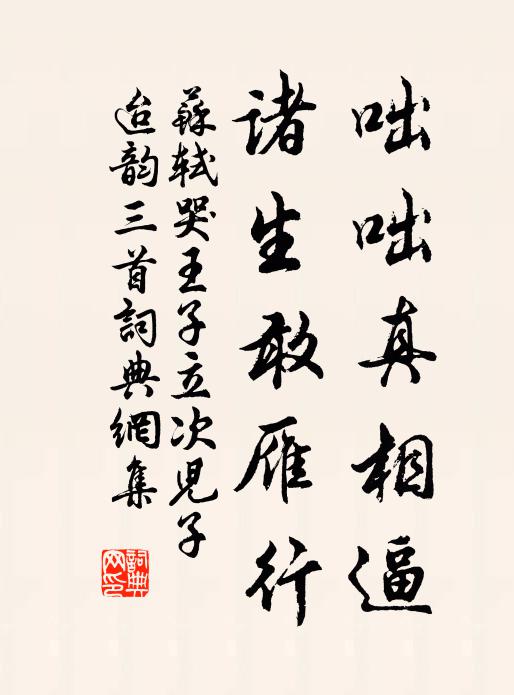 咄咄真相逼
诸生敢雁行
蘇軾哭王子立次児子
迨韵三首詞典網集
詞典网印